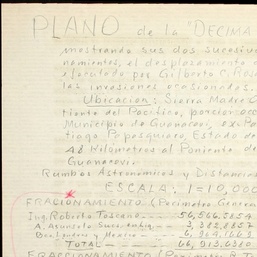 PLANO de la "DECIMA
mostrando sus dos sucesiv
namientos, el desplazamiento
ejecutado por Gilberto C. Ros
las invasiones ocasionadas.
Ubicacion: Sierra Madre O
tiente del Pacifico, porcion occ
Municipio de Guanacevi, ex-Pa
tiago Papasquiaro, Estado de
48 Kilometros al Poniente de
Guanacevi.
Rumbos Astronomicos y Distancia
ESCALA: 1=10,000
FRACIONAMIENTO (Perimetro Genera
Ing. Roberto Toscano 56,566.3854
A. Asunsolo 3,382.8857
y Mexico 6,964.1669
TOTAL 66,913.6380
FRACCIONAMIENTO